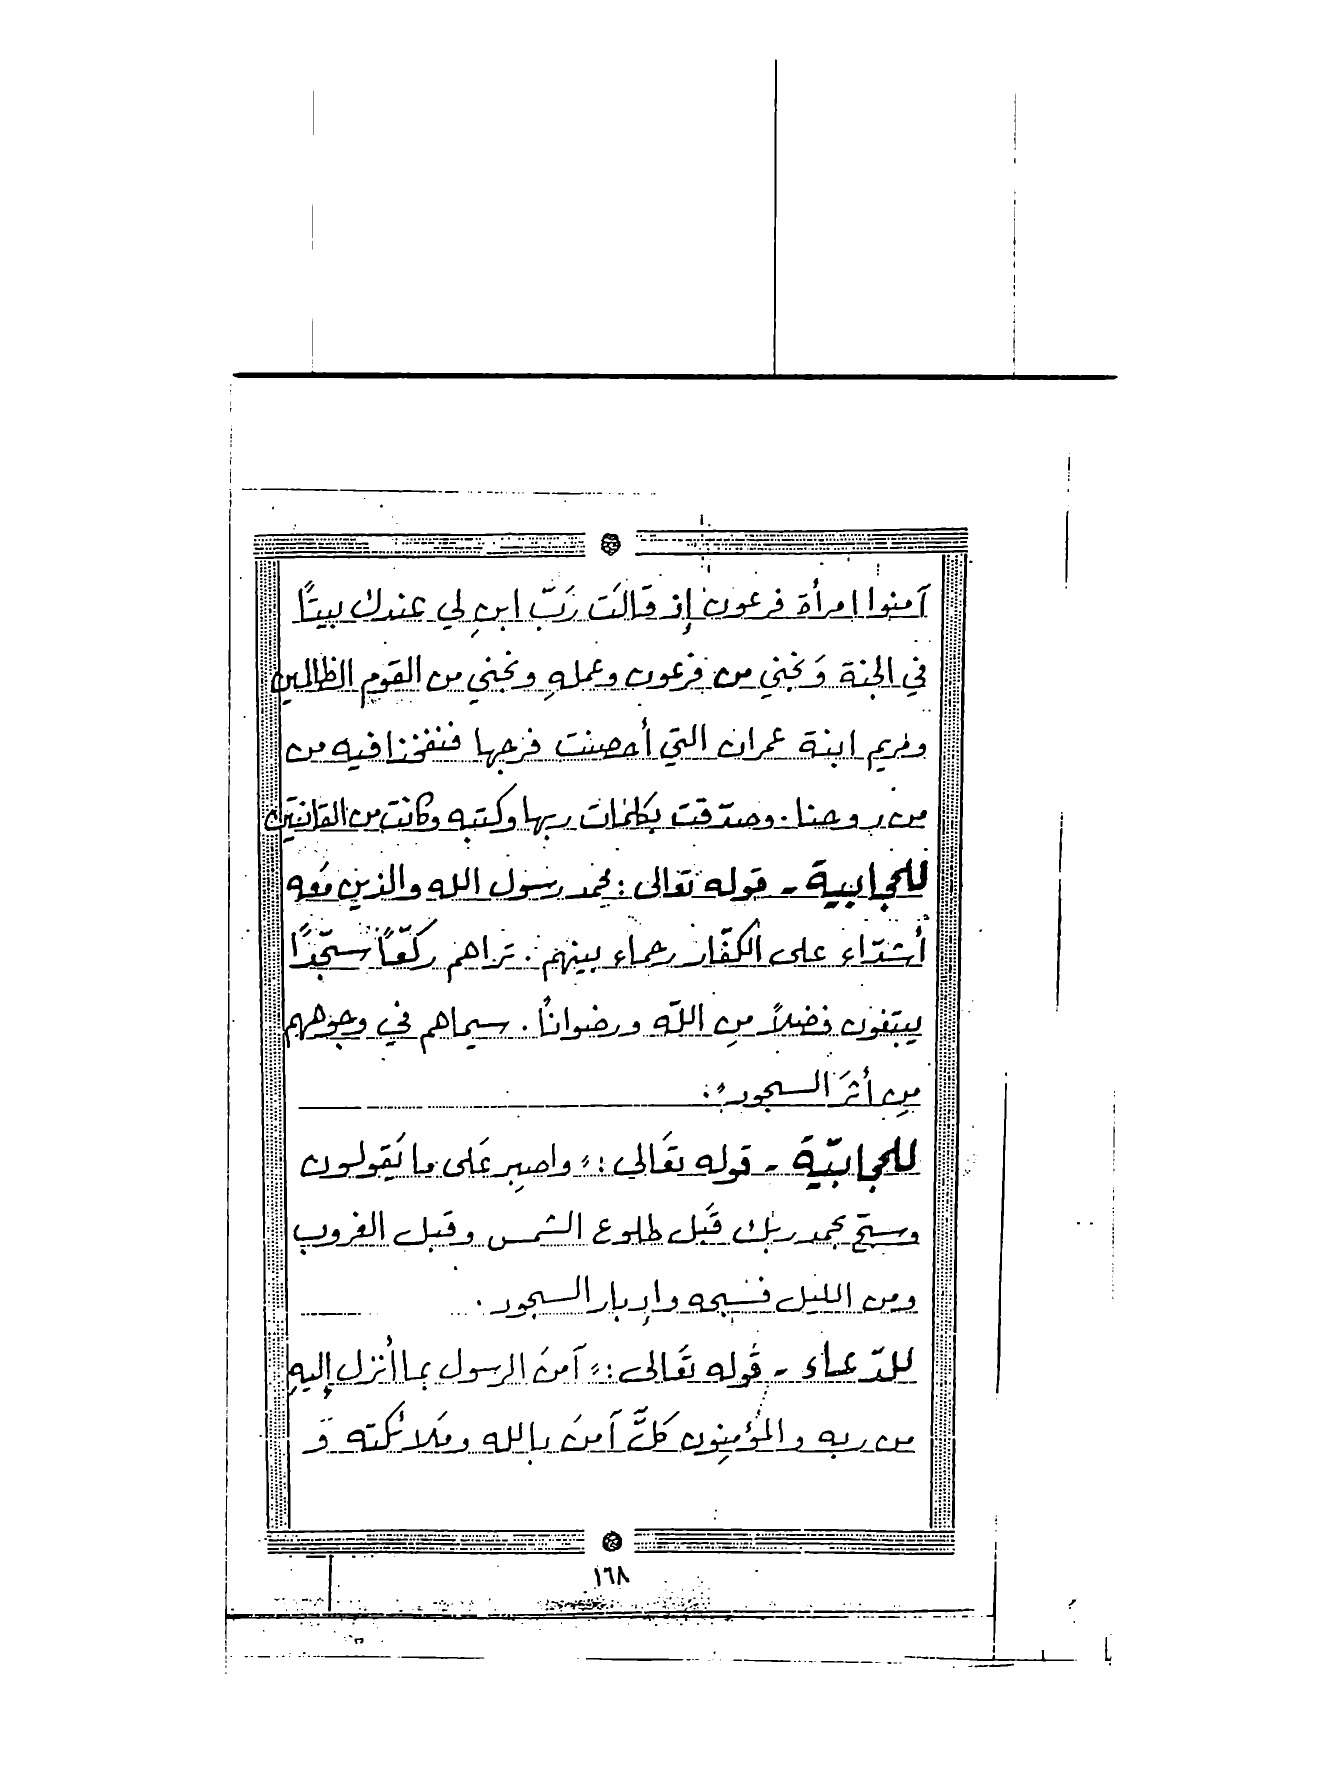 آمنوا امرأة فرعون إذ قالت رَبّ ابنِ لي عندك بيتًا
في الجنة وَنجني من فرعون وعملهِ ونجني من القوم الظالمين
ومريم ابنة عمران التي أحصنت فرجها فنفخنا فيه من
من روحنا. وصدّقت بكلمات ربها وكتبه وكانت من القانتين
للمجابية - قوله تعالى : محمد رسول الله والذين مَعه
أشدّاء على الكفّار رحماء بينهم . تراهم ركّعًا سجّدًا
يبتغون فضلاً مِن اللّه ورضوانًا . سيماهم في وجوههم
مِن أثَر السجود .
للمجابيّة - قوله تعَالى : واصبِر عَلى ما يَقولون
وسبّح بحمد ربك قَبل طلوع الشمس وقبل الغروب
ومن الليل فسَبحه وإدبار السجود .
للدّعاء - قوله تعَالى : آمنَ الرسول بما أُنزل إليهِ
من ربه والمؤمِنون كلٌّ آمنَ بالله ومَلائكته وَ
١٦٨